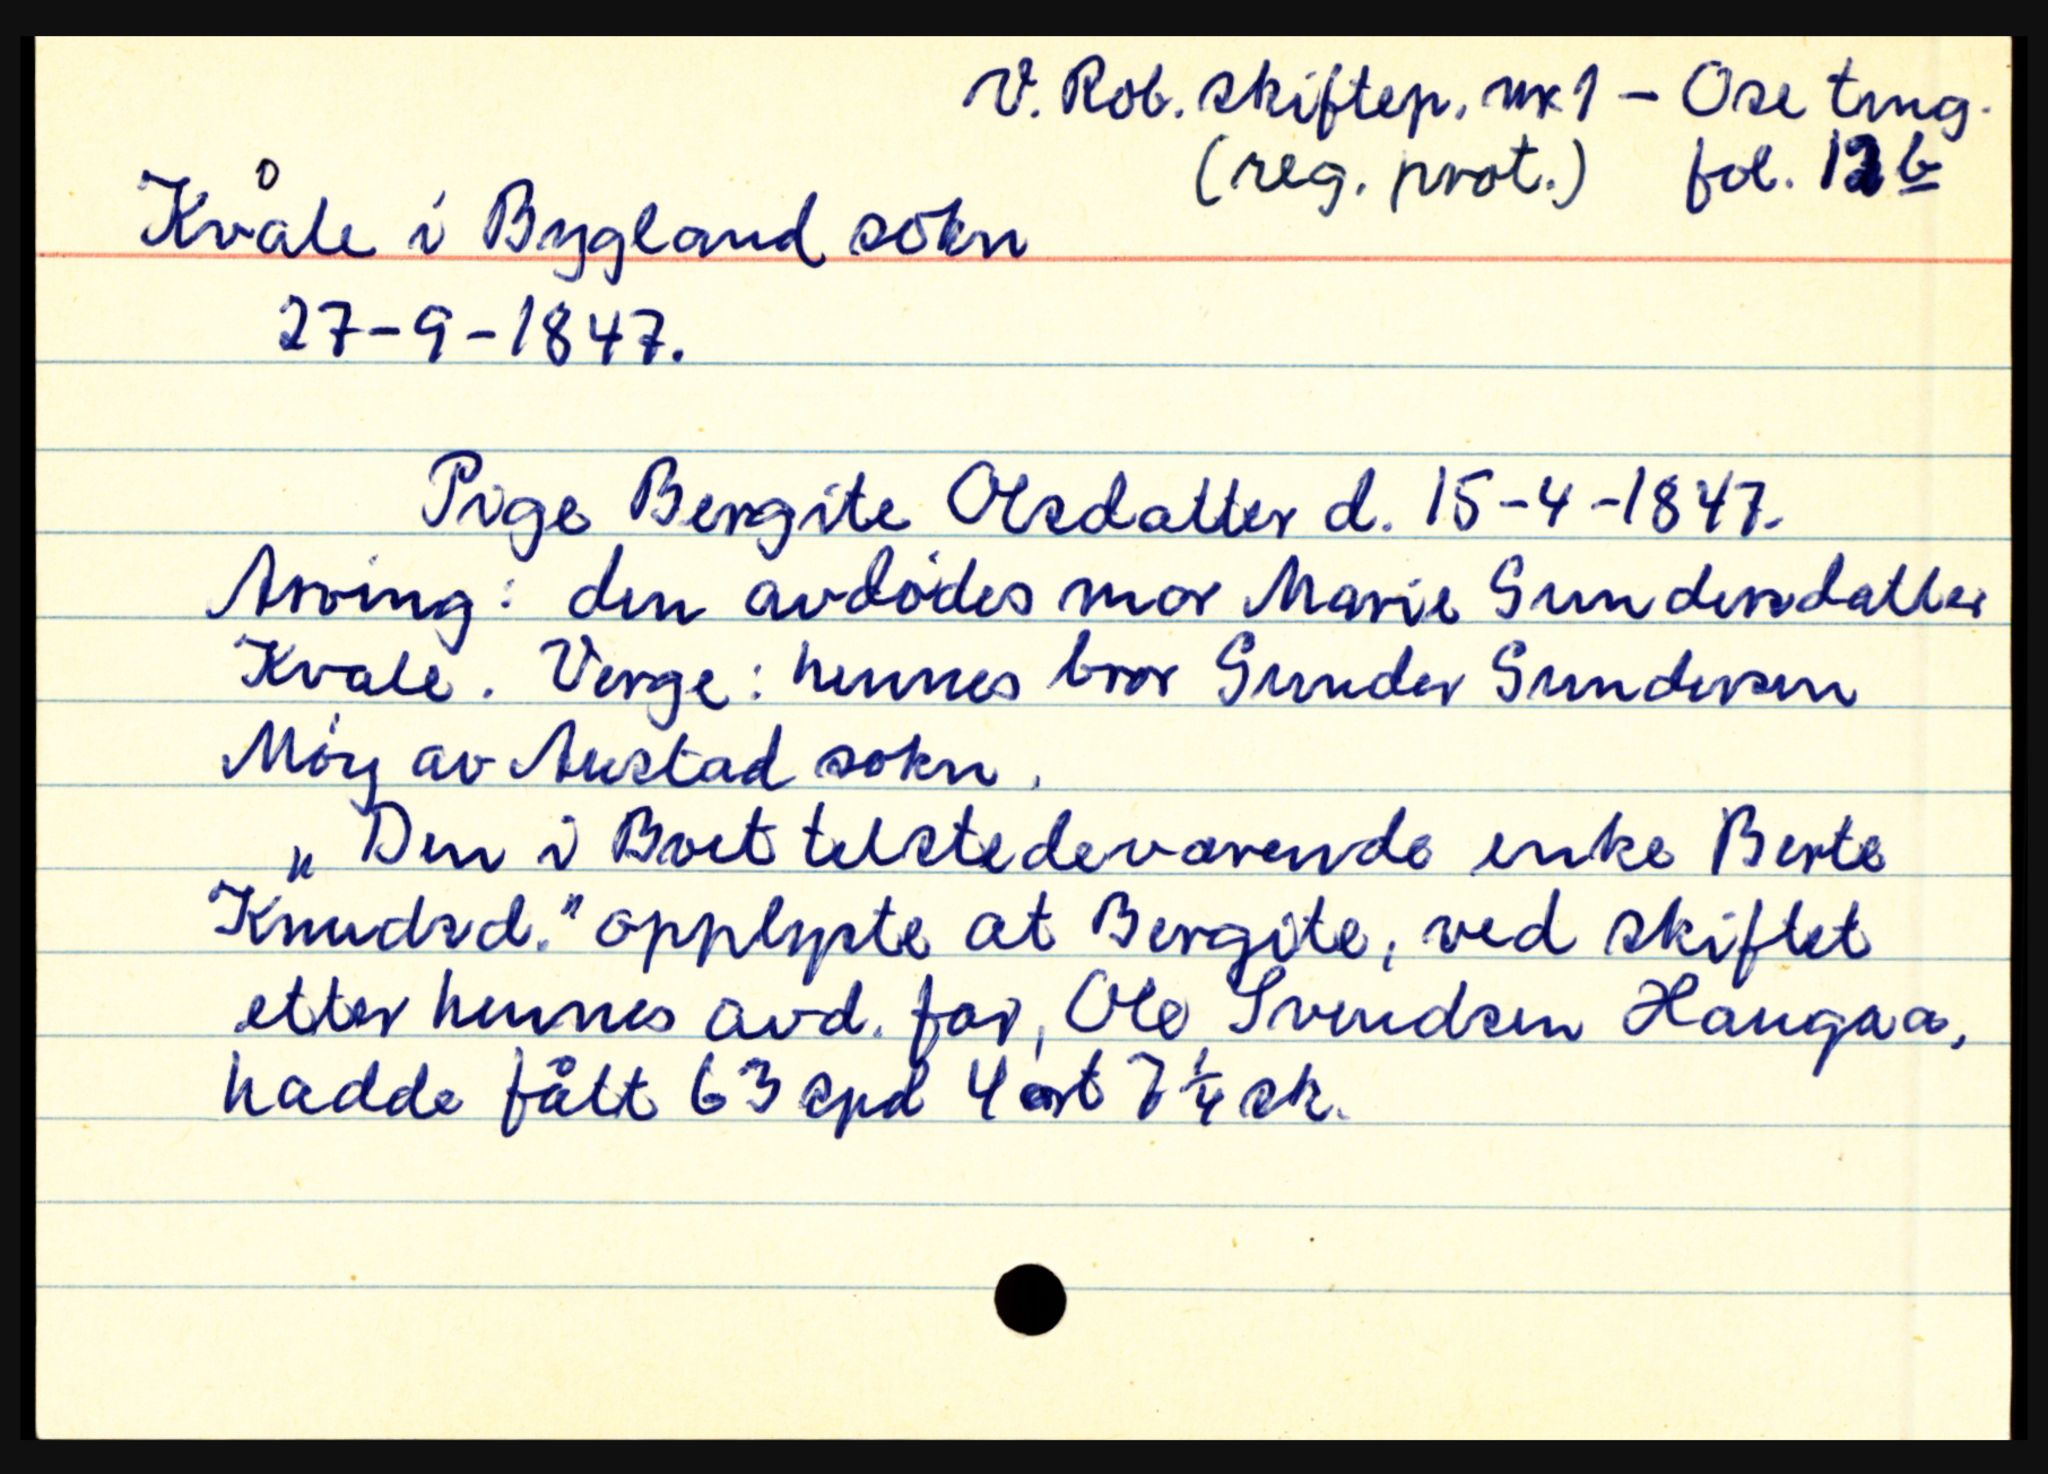 V. Rob. skiftep. nr 1 – Ose ting.
(reg. prot.) fol. 12 b
Kvåle i Bygland sokn
27-9-1847.
Pige Bergite Olsdatter d. 15-4-1847.
Arving: den avdødes mor Marie Gundersdatter
Kvale. Verge: hennes bror Gunder Gundersen
Möy av Austad sokn.
„Den i Boet tilstedeværende enke Berte
Knudsd." opplyste at Bergite, ved skiftet
etter hennes avd. far, Ole Svendsen Haugaa,
hadde fått 63 spd 4 ort 7 1/4 sk.